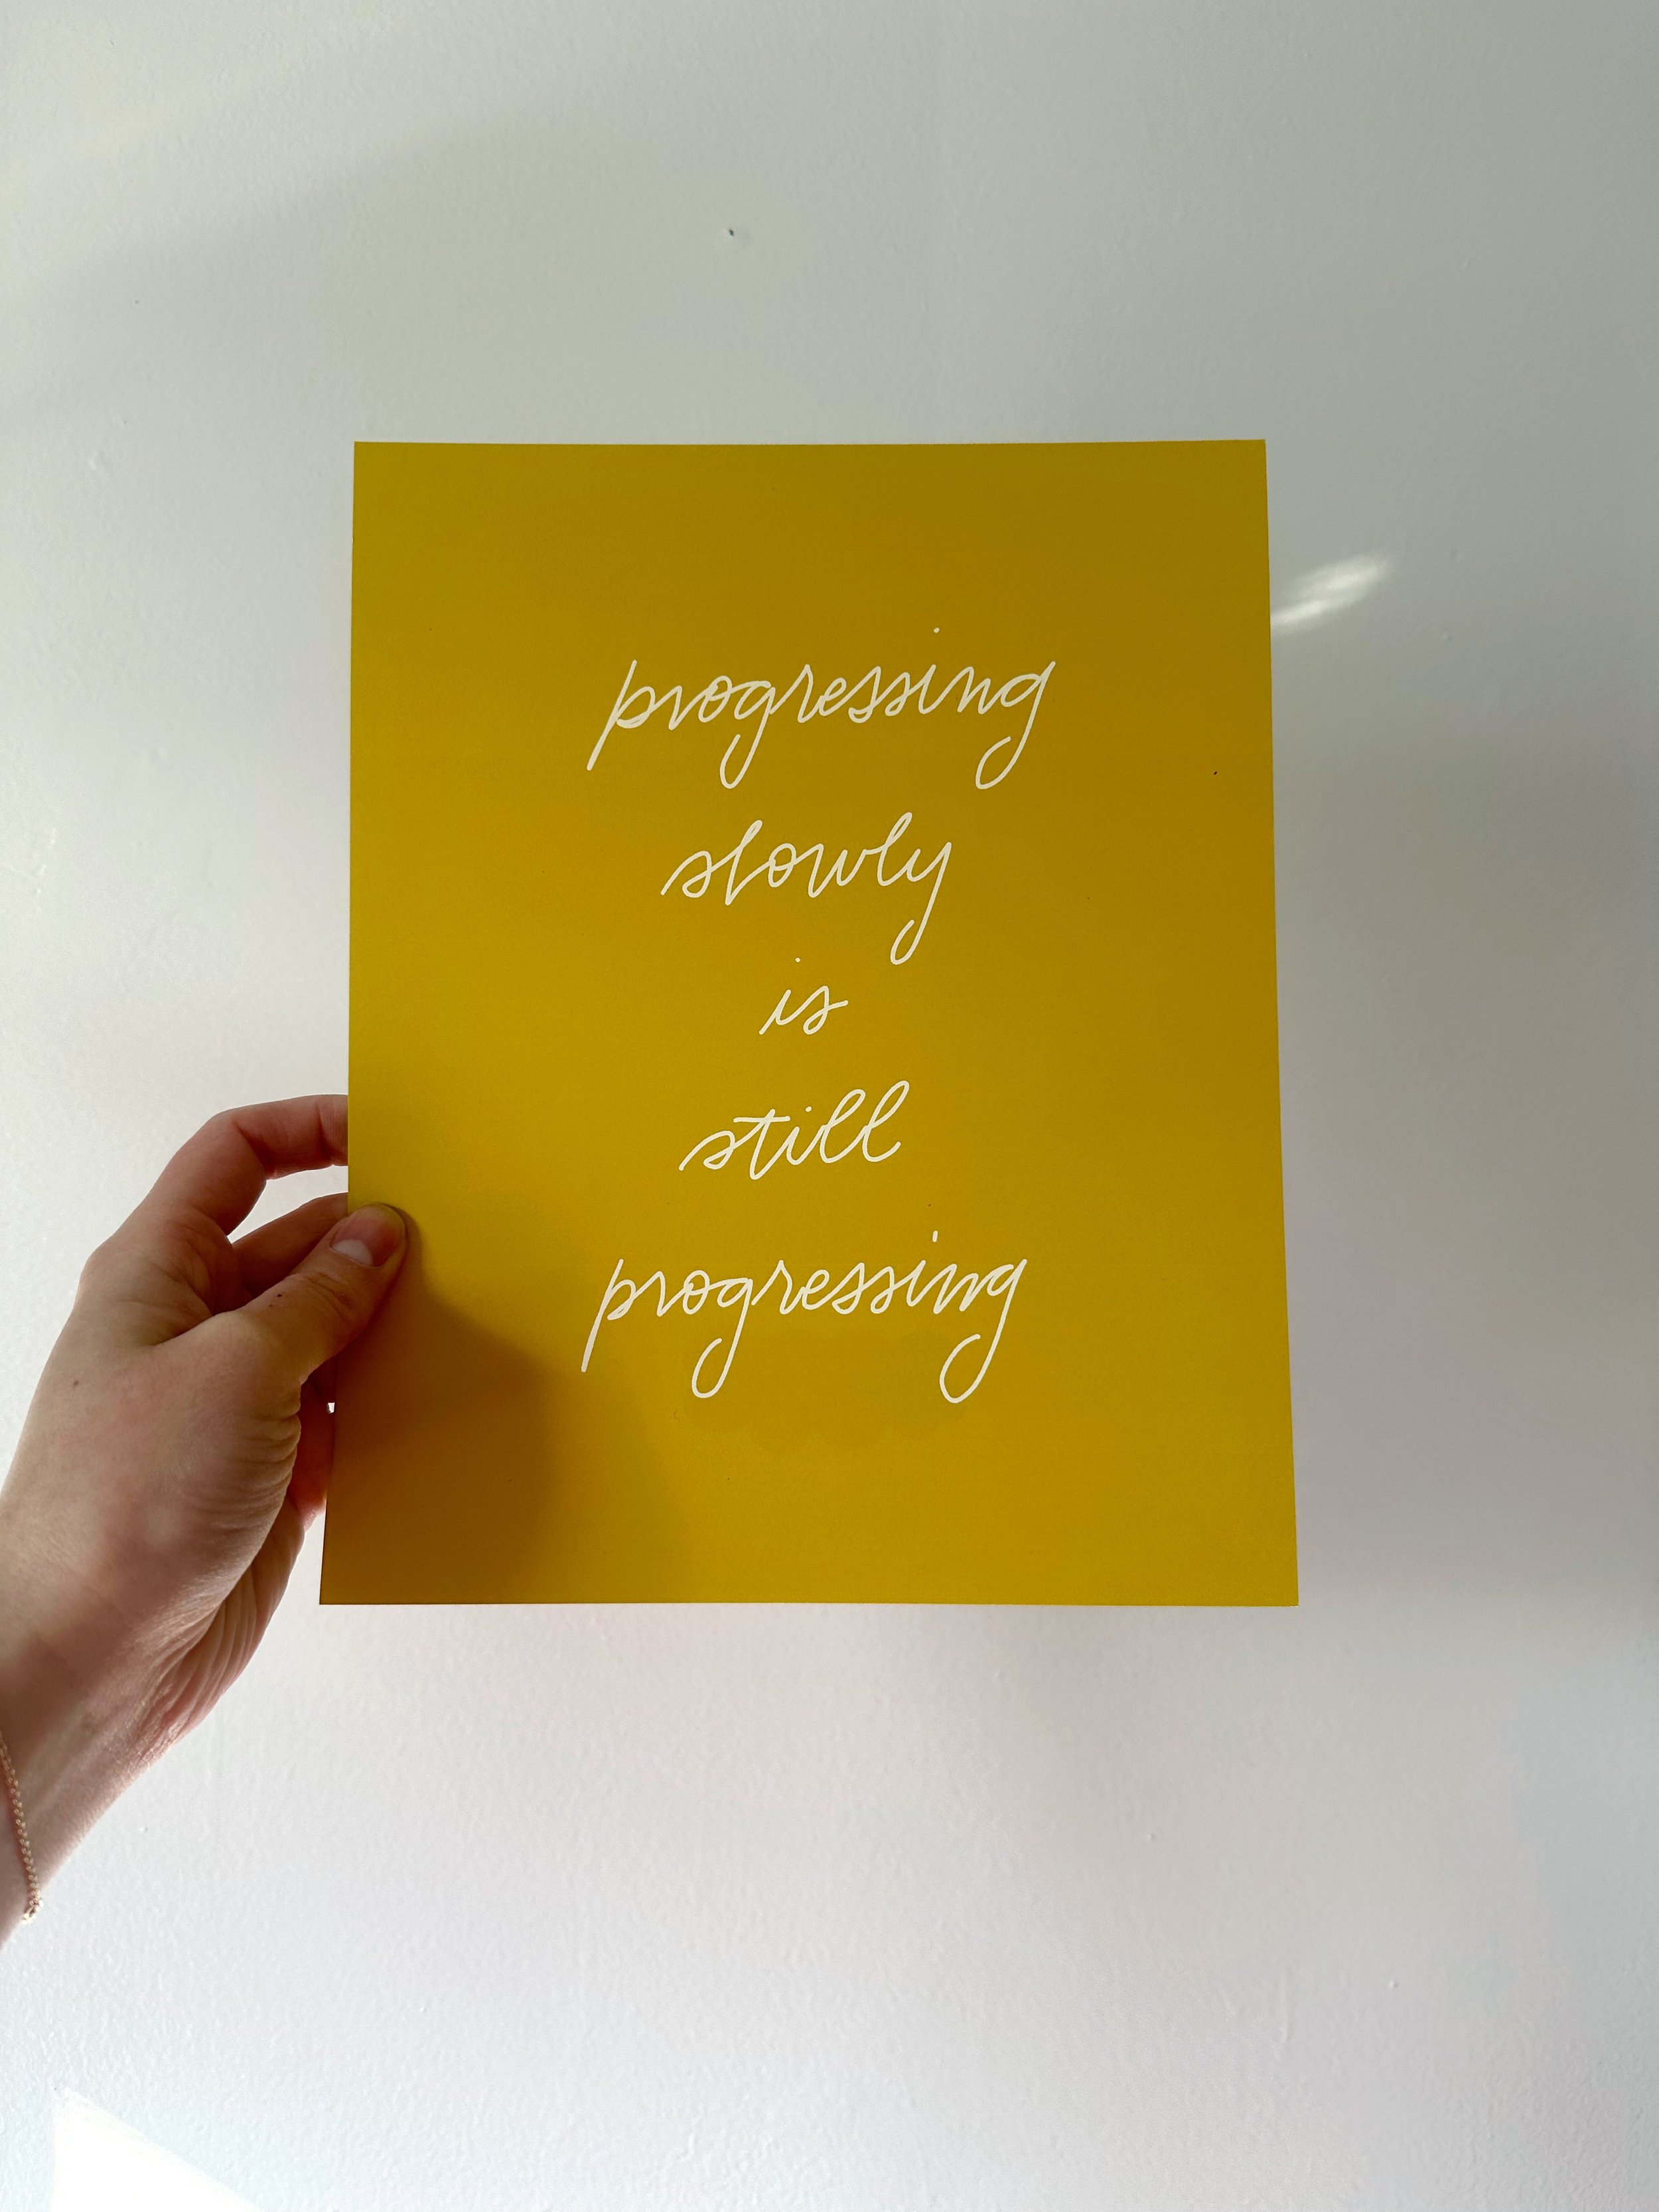 progressing
slowly
is
still
progressing